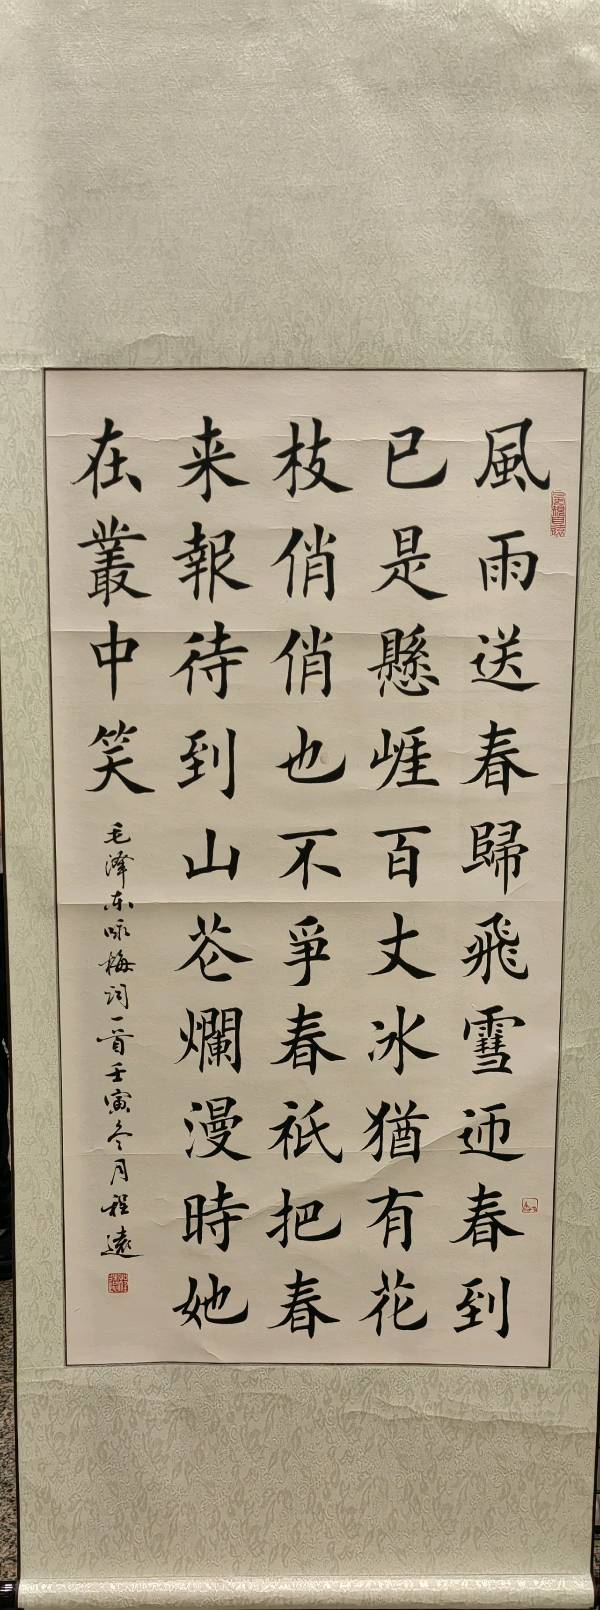 風雨送春歸飛雪迊春到
已是懸崕百丈冰猶有花
枝俏俏也不爭春祇把春
来報待到山芲爛漫時她
在叢中笑
毛泽东咏梅词一首壬寅冬月程遠